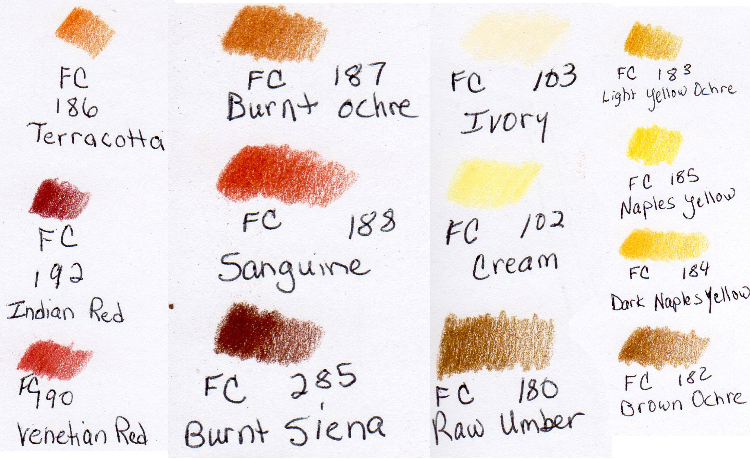 FC
186
Terracotta
FC
192
Indian Red
FC 190
Venetian Red
FC 187
Burnt Ochre
FC 188
Sanguine
FC 285
Burnt Siena
FC 103
Ivory
FC 102
Cream
FC 180
Raw Umber
FC 183
Light Yellow Ochre
FC 185
Naples Yellow
FC 184
Dark Naples Yellow
FC 182
Brown Ochre